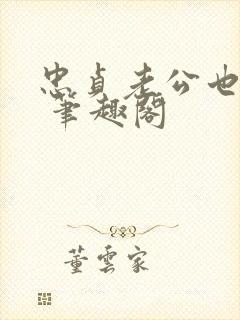 忠贞老公也
笔趣阁
董云家